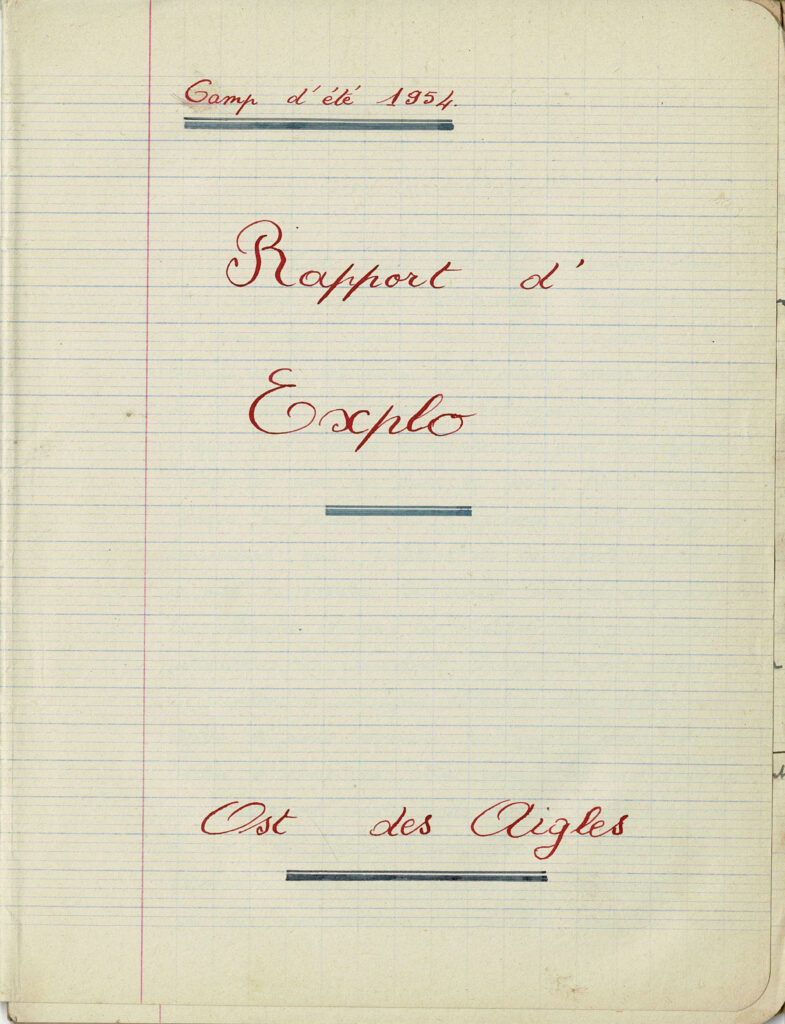 Camp d'été 1954.
Rapport d'
Explo
Ost des Aigles